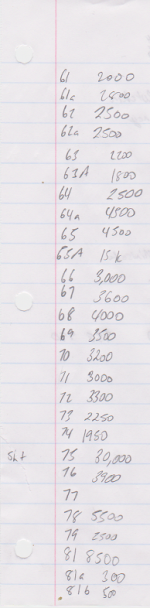 61 2000
61a 2800
62 2500
62a 2500
63 2200
63A 1800
64 2500
64a 4500
65 4500
65A 15k
66 3,000
67 3600
68 4000
69 3500
70 3200
71 3000
72 3300
73 2250
74 1950
Sht 75 30,000
76 3900
77
78 5500
79 2500
81 8500
81a 300
81b 50